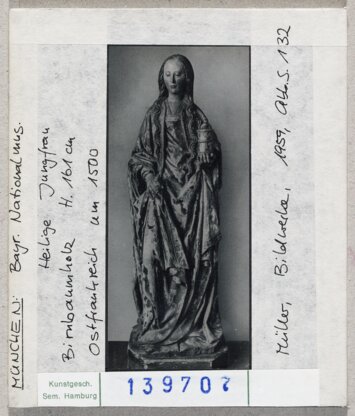 MÜNCHEN: Bayr. Nationalmus.
Heilige Jungfrau
Birnbaumholz H. 161 cm
Ostfrankreich um 1500
Müller, Bildwerke, 1959, Abb. S. 132
Kunstgesch.
Sem. Hamburg
139707